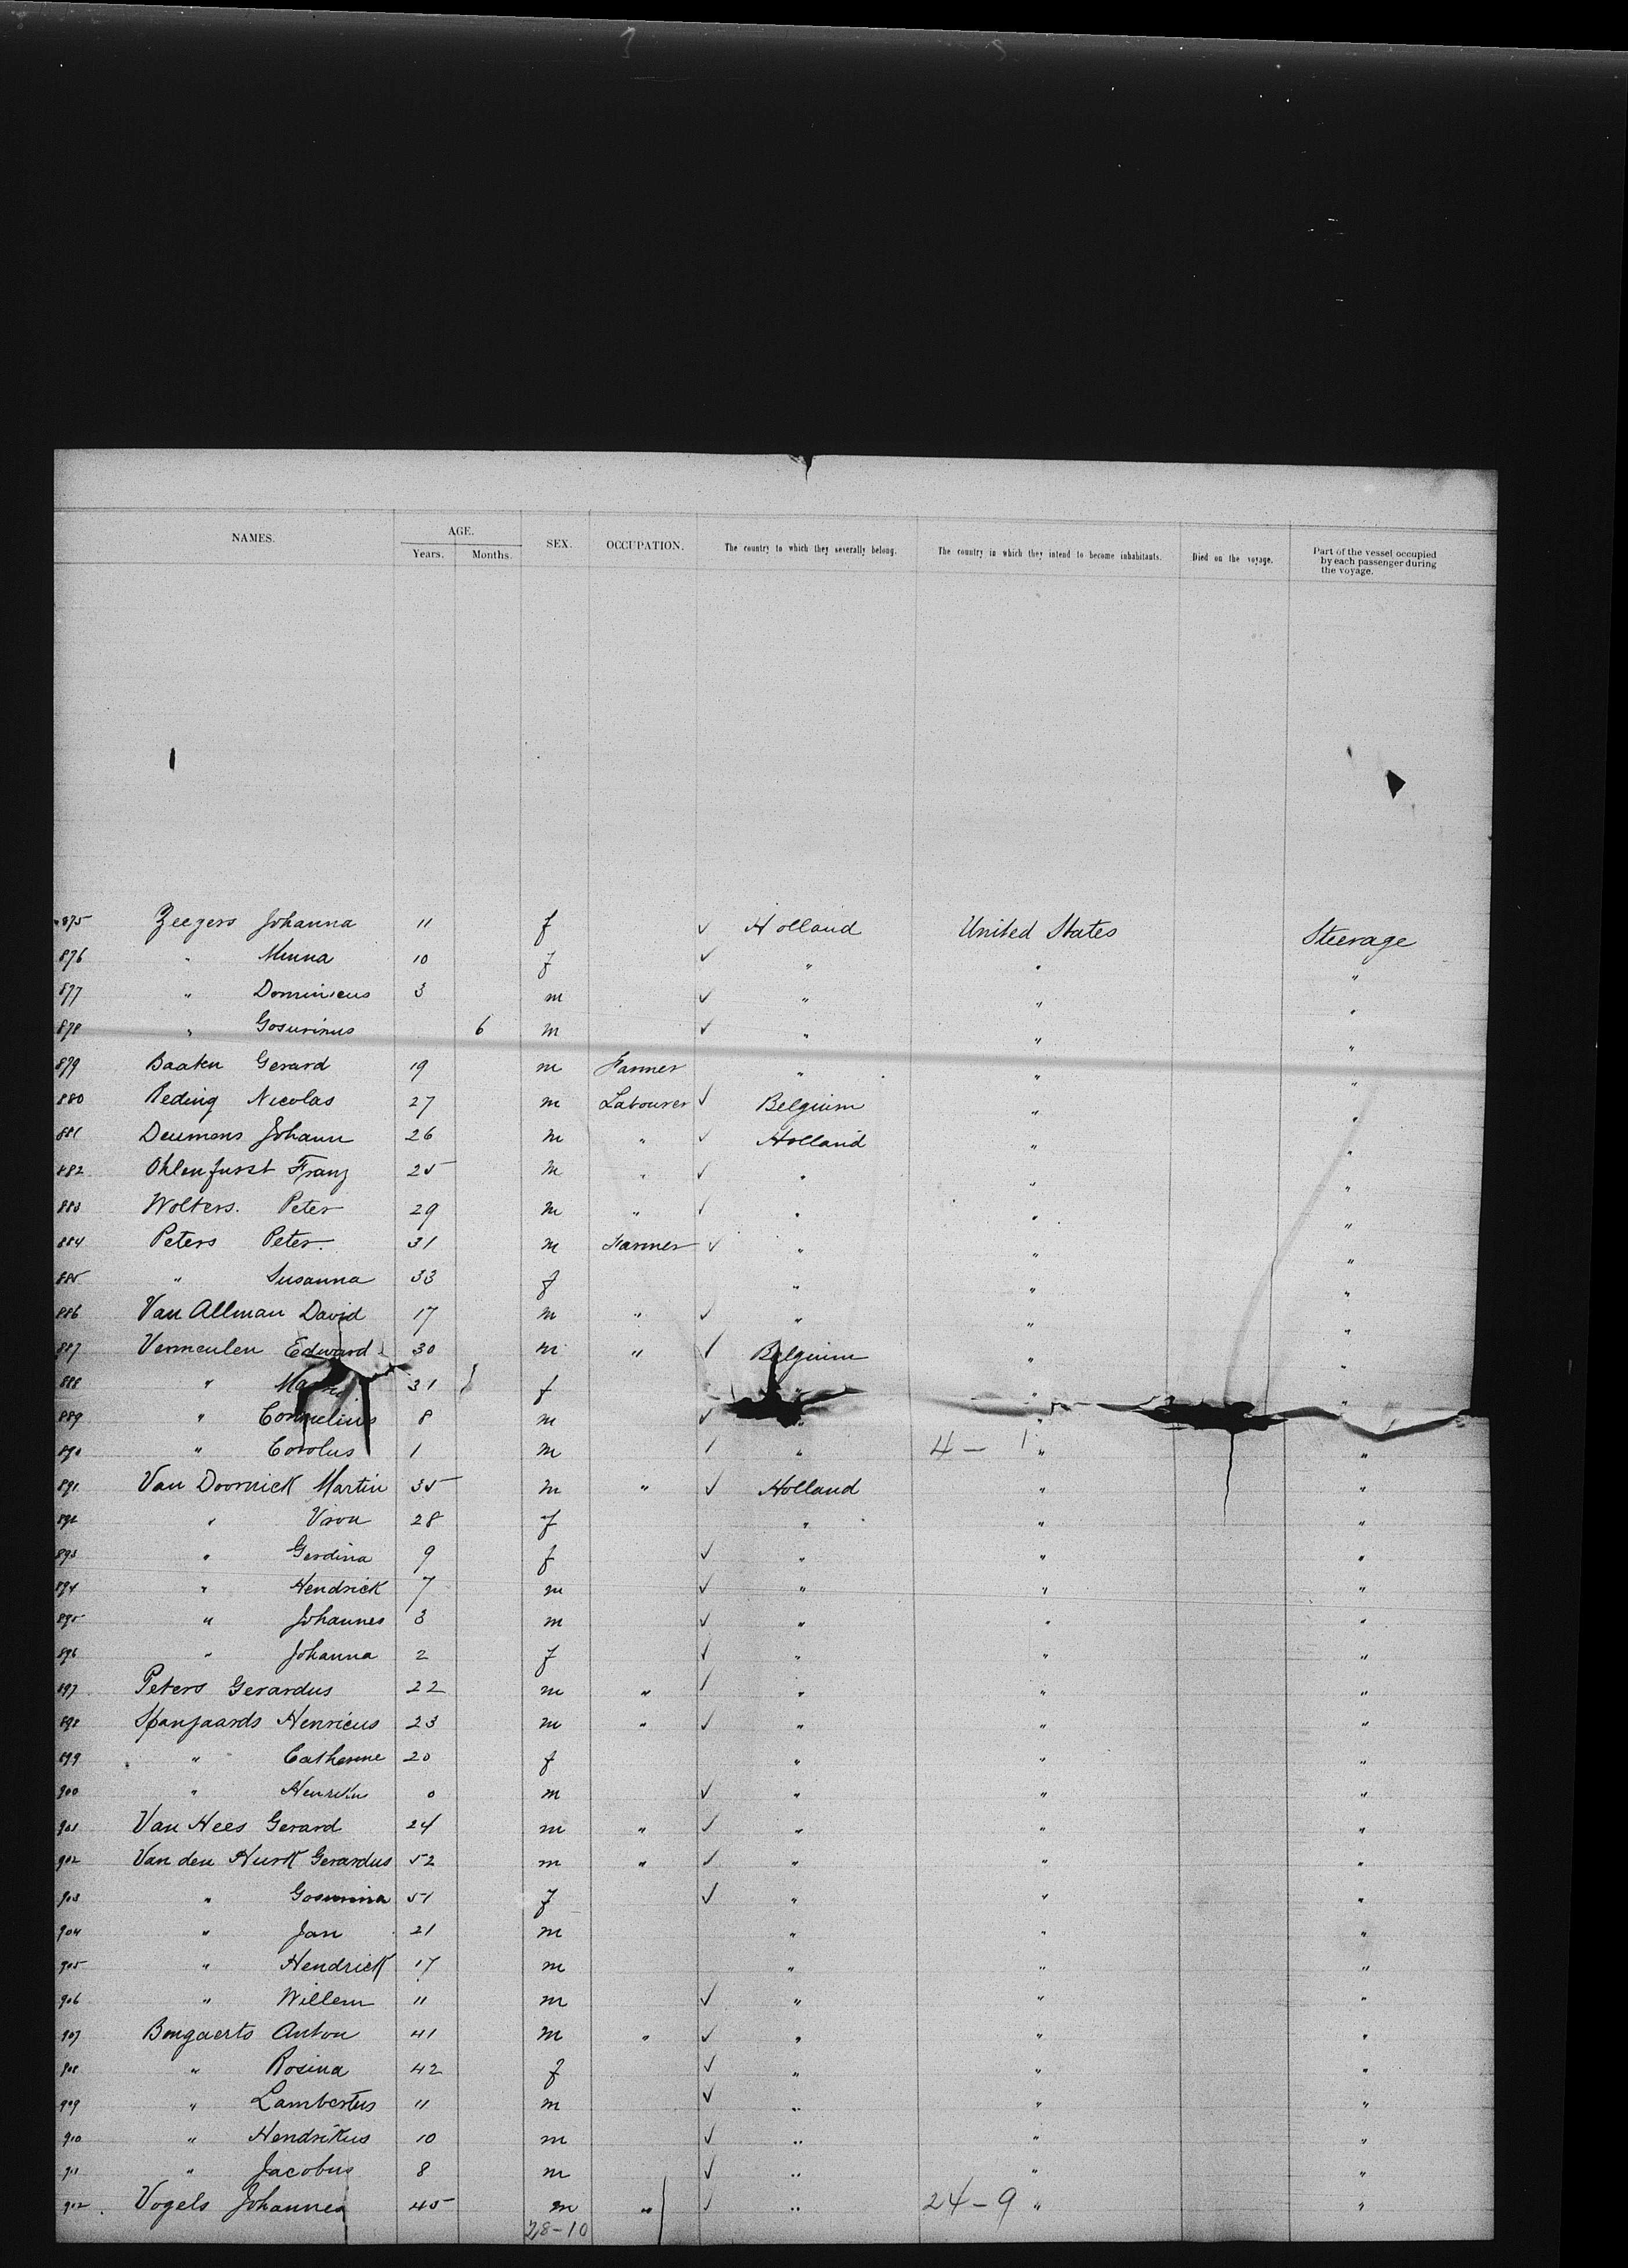 NAMES. AGE. SEX. OCCUPATION. The country to which they severally belong. The country in which they intend to become inhabitants. Died on the voyage. Part of the vessel occupied by each passenger during the voyage.
Years. Months.
875 Zeegers Johanna 11 f ✓ Holland United States Steerage
876 " Minna 10 f ✓ " " "
877 " Dominicus 3 m ✓ " " "
878 " Gosuvinus 6 m ✓ " " "
879 Baaken Gerard 19 m Farmer " " "
880 Reding Nicolas 27 m Labourer ✓ Belgium " "
881 Deumens Johann 26 m " ✓ Holland " "
882 Ohlenfurst Franz 25 m " ✓ " " "
883 Wolters. Peter 29 m " ✓ " " "
884 Peters Peter. 31 m Farmer ✓ " " "
885 " Susanna 33 f " " "
886 Van Allman David 17 m " ✓ " " "
887 Vermeulen Edward 30 m " ✓ Belgium " "
888 " 31 f " "
889 " Cornelius 8 m ✓ " "
890 " Corolus 1 m ✓ " 4 - 1 " "
891 Van Doornick Martin 35 m " ✓ Holland " "
892 " Vrou 28 f " " "
893 " Gerdina 9 f ✓ " " "
894 " Hendrick 7 m ✓ " " "
895 " Johannes 3 m ✓ " " "
896 " Johanna 2 f ✓ " " "
897 Peters Gerardus 22 m " ✓ " " "
898 Spanjaards Henricus 23 m " ✓ " " "
899 " Catherine 20 f " " "
900 " Henrikus 0 m ✓ " " "
901 Van Hees Gerard 24 m " ✓ " " "
902 Van den Hurk Gerardus 52 m " ✓ " " "
903 " 51 f ✓ " " "
904 " Jan 21 m " " "
905 " Hendrick 17 m " " "
906 " Willem 11 m ✓ " " "
907 Bongaerts Anton 41 m " ✓ " " "
908 " Rosina 42 f ✓ " " "
909 " Lambertus 11 m ✓ " " "
910 " Hendrikus 10 m ✓ " " "
911 " Jacobus 8 m ✓ " " "
912. Vogels Johannes 45 m " ✓ " 24 - 9 " "
28-10